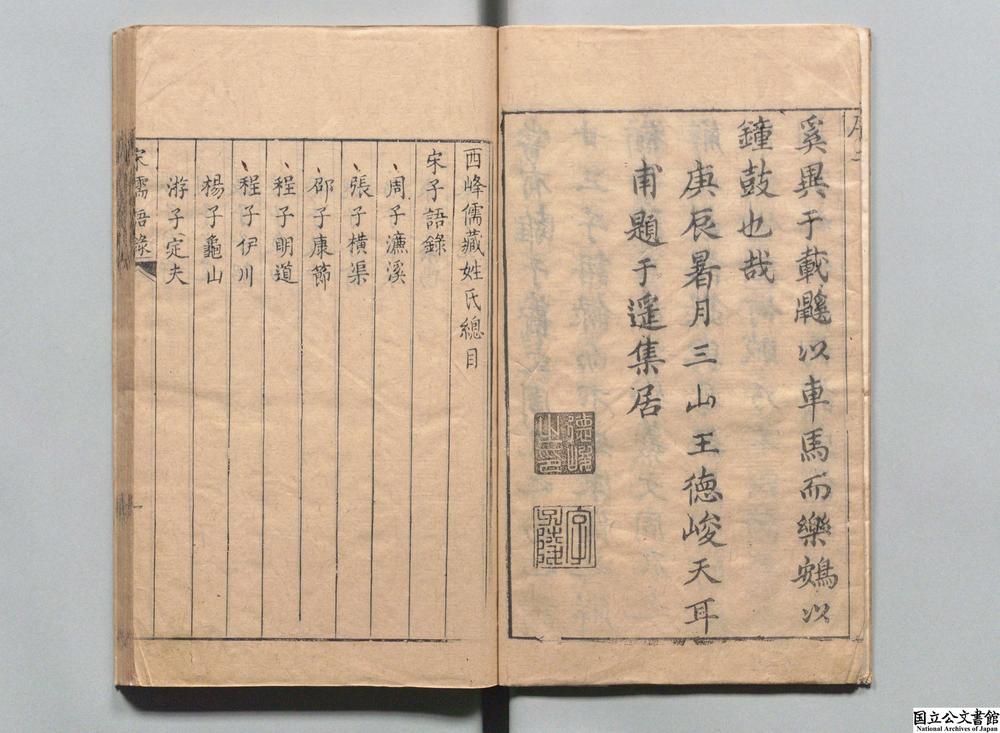 奚異于載鼷以車馬而樂鴳以
鐘鼓也哉
庚辰暑月三山王德峻天耳
甫題于遥集居
德峻之印
西峰儒藏姓氏總目
宋子語錄
周子濂溪
張子橫渠
邵子康節
程子明道
程子伊川
楊子龜山
游子定夫
宋儒語錄
国立公文書館
National Archives of Japan